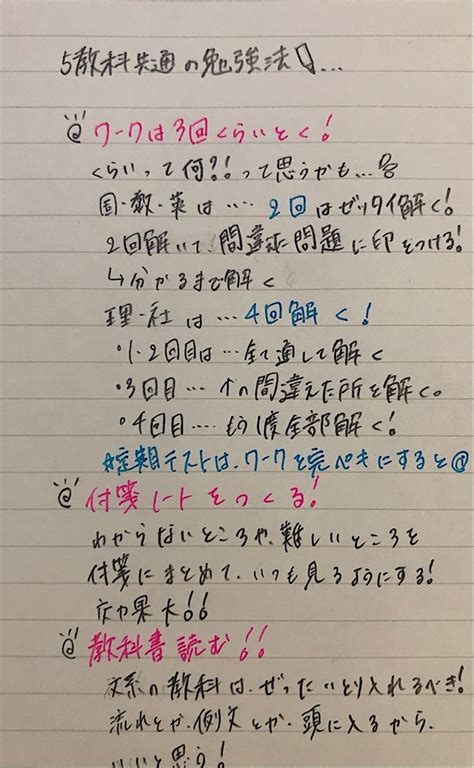 5教科共通の勉強法!...
@ワークは3回くらいとく!
くらいって何?!って思うかも...
国・数・英は…. 2回はゼッタイ解く!
2回解いて、間違えた問題に印をつける!
↳分かるまで解く
理・社は…4回解く!
・1・2回目は…全て通して解く
・3回目…↑の間違えた所を解く。
・4回目….もう1度全部解く!
定期テストは、ワークを完ペキにすると◎
@付箋ノートをつくる!
わからないところや、難しいところを
付箋にまとめて、いつも見るようにする!
効果大!!
@教科書読む!!
文系の教科は、ぜったいとり入れるべき!
流れとか、例文とか、頭に入るから、
いいと思う!